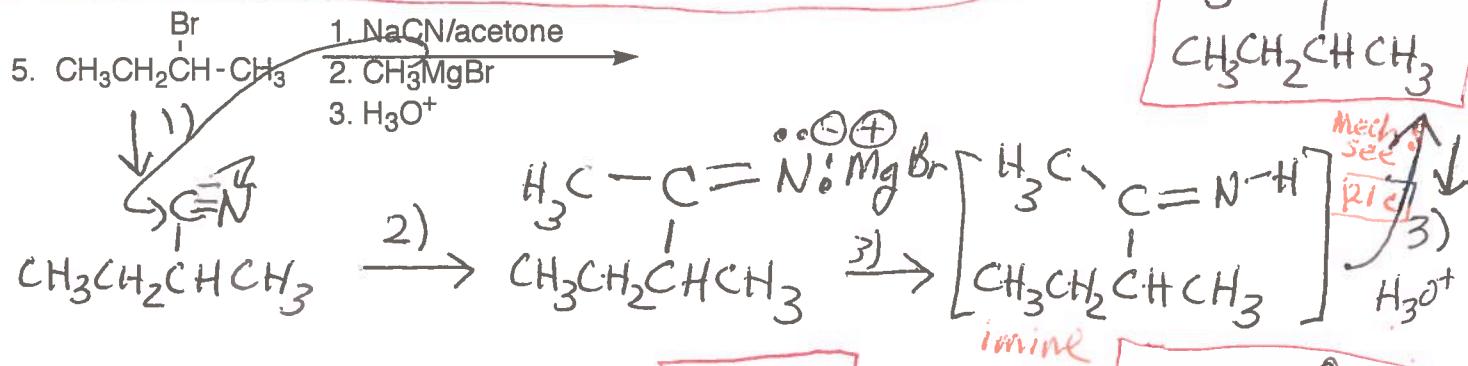 Br
5. CH3CH2CH-CH3
1. NaCN/acetone
2. CH3MgBr
3. H3O+
CH3CH2CHCH3
1)
C≡N
CH3CH2CHCH3
2)
H3C-C=N: ⊖⊕ MgBr
CH3CH2CHCH3
3)
H3C C=N-H
CH3CH2CHCH3
imine
Mech
see
21c
3)
H3O+